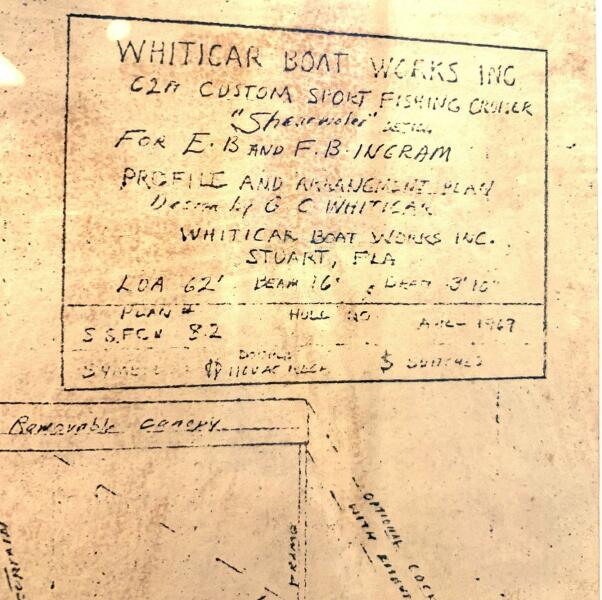 WHITICAR BOAT WORKS INC
62ft CUSTOM SPORT FISHING CRUISER
"Shearwater" DESIGN
FOR E.B AND F.B. INGRAM
PROFILE AND ARRANGMENT PLAN
Design by G C WHITICAR
WHITICAR BOAT WORKS INC.
STUART, FLA
LOA 62' BEAM 16'
PLAN # HULL NO 1967
Removable canopy
CURTAIN
FRAME
OPTIONAL
WITH